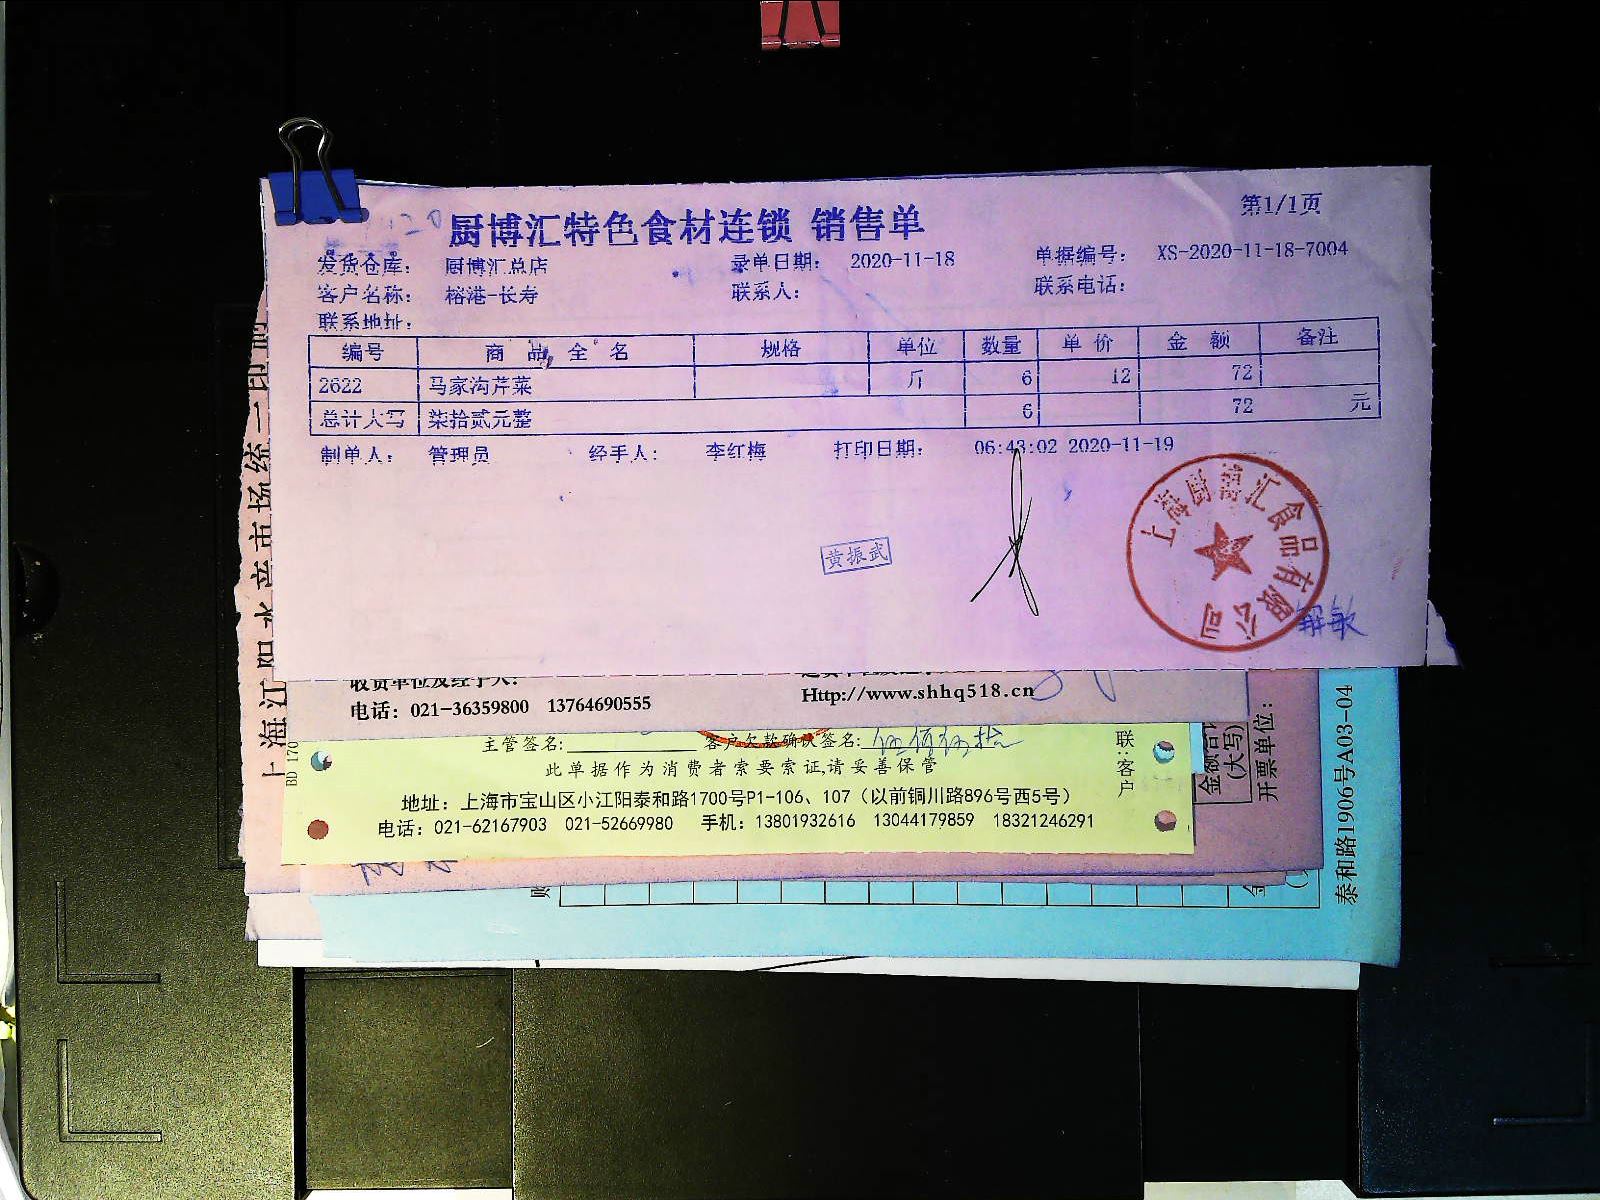 厨博汇特色食材连锁 销售单
第1/1页
发货仓库： 厨博汇总店 录单日期： 2020-11-18 单据编号： XS-2020-11-18-7004
客户名称： 榕港-长寿 联系人： 联系电话：
联系地址：
编号 商 品 全 名 规格 单位 数量 单 价 金 额 备注
2622 马家沟芹菜 斤 6 12 72
总计大写 柒拾贰元整 6 72 元
制单人： 管理员 经手人： 李红梅 打印日期： 06:43:02 2020-11-19
黄振武
上海厨博汇食品有限公司
解敏
收货单位及经手人：
Http://www.shhq518.cn
电话：021-36359800 13764690555
主管签名： 客户欠款确认签名：
此单据作为消费者索要索证,请妥善保管
联:客户
地址：上海市宝山区小江阳泰和路1700号P1-106、107（以前铜川路896号西5号）
电话：021-62167903 021-52669980 手机：13801932616 13044179859 18321246291
上海江阳水产市场统一印制
BD 170
金额合计
(大写)
开票单位：
泰和路1906号A03-04